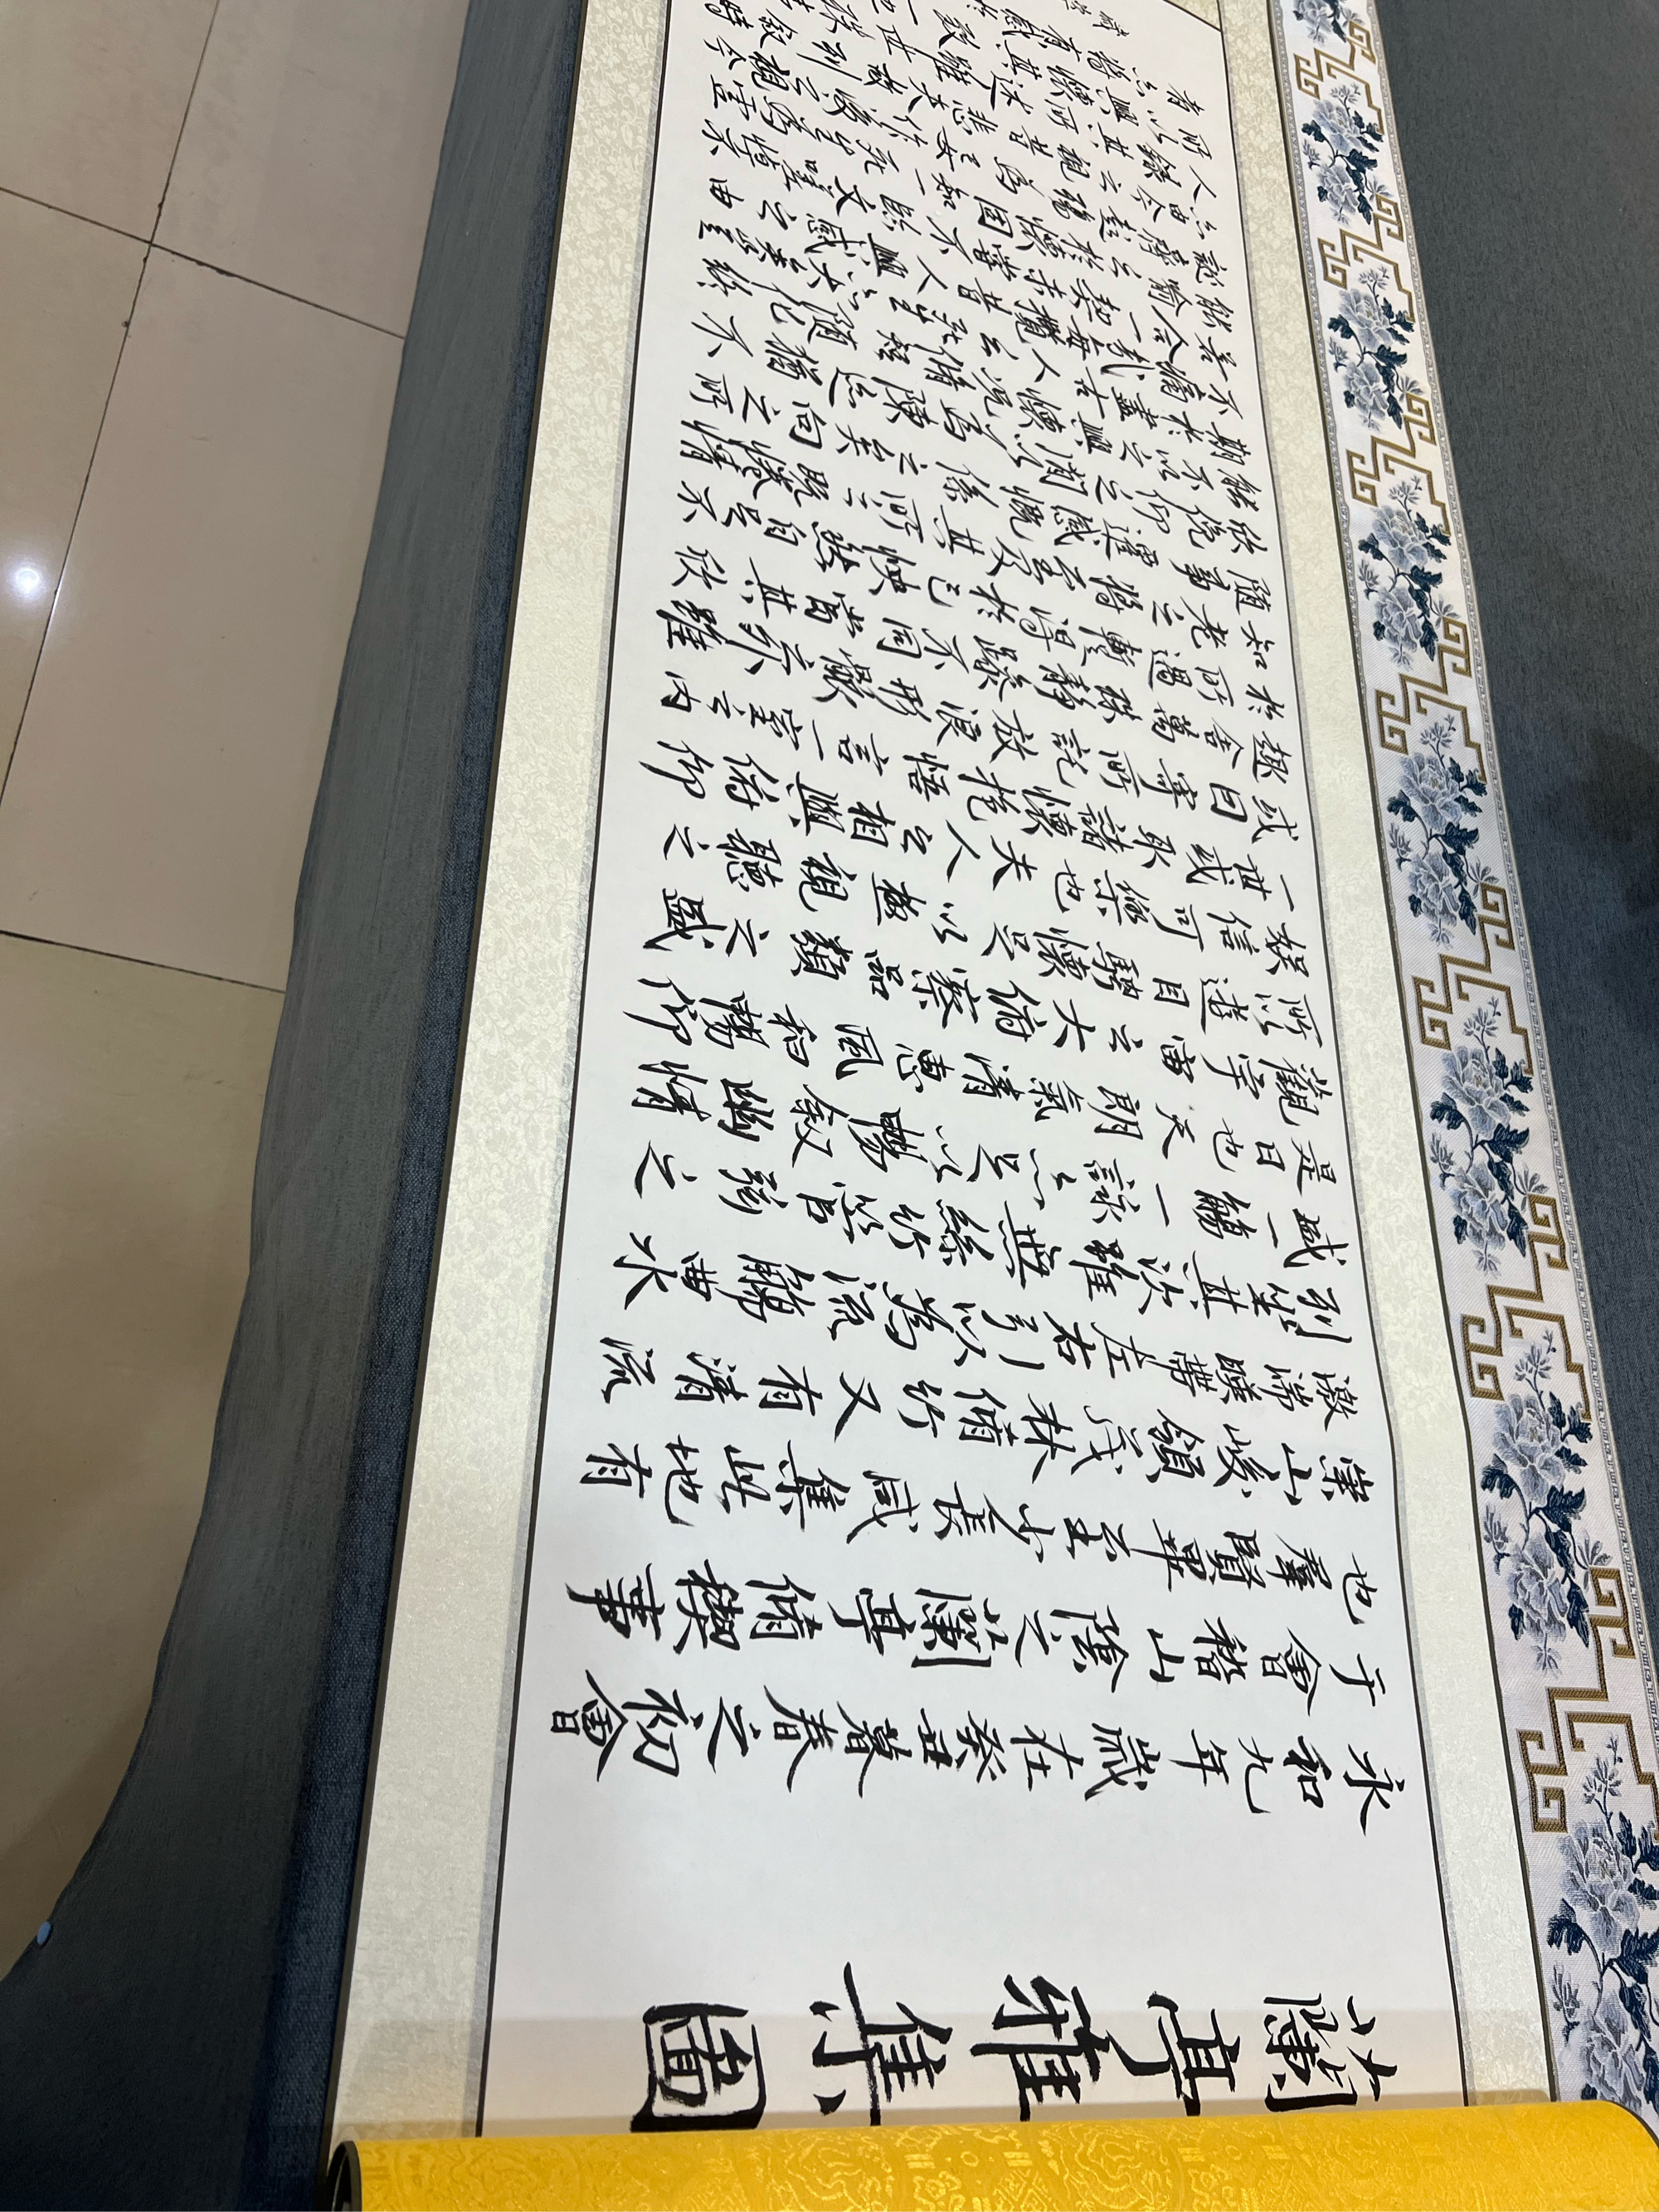 蘭亭雅集圖
永和九年歲在癸丑暮春之初會
于會稽山陰之蘭亭脩禊事
也羣賢畢至少長咸集此地有
崇山峻領茂林脩竹又有清流
激湍暎帶左右引以為流觴曲水
列坐其次雖無絲竹管弦之
盛一觴一詠亦足以暢叙幽情
是日也天朗氣清惠風和暢仰
觀宇宙之大俯察品類之盛
所以遊目騁懷足以極視聽之
娱信可樂也夫人之相與俯仰
一世或取諸懷抱悟言一室之内
或因寄所託放浪形骸之外雖
趣舍萬殊靜躁不同當其欣
於所遇暫得於己怏然自足不
知老之將至及其所之既惓情
隨事遷感慨係之矣向之所
欣俛仰之閒以為陳迹猶不
能不以之興懷況脩短隨化終
期於盡古人云死生亦大矣豈
不痛哉每攬昔人興感之由
若合一契未嘗臨文嗟悼不
能喻之於懷固知一死生為虛
誕齊彭殤為妄作後之視今
亦由今之視昔悲夫故列叙時
人錄其所述雖世殊
所以興懷其致
者亦將有感於